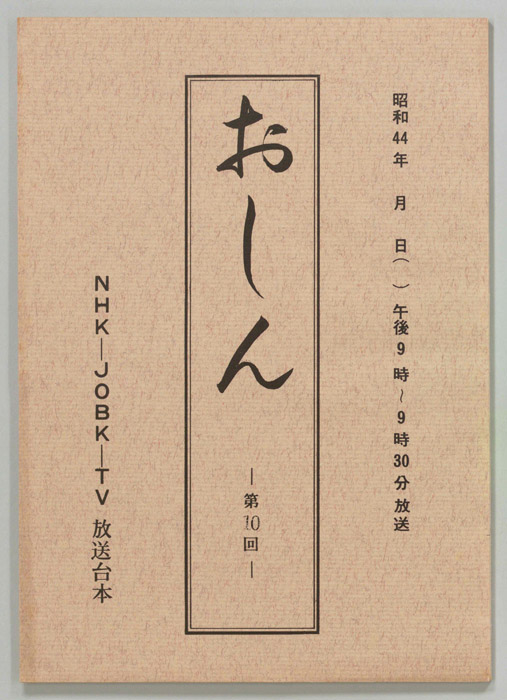 昭和44年　月　日(　)午後9時〜9時30分放送
おしん
―第10回―
NHK―JOBK―TV 放送台本